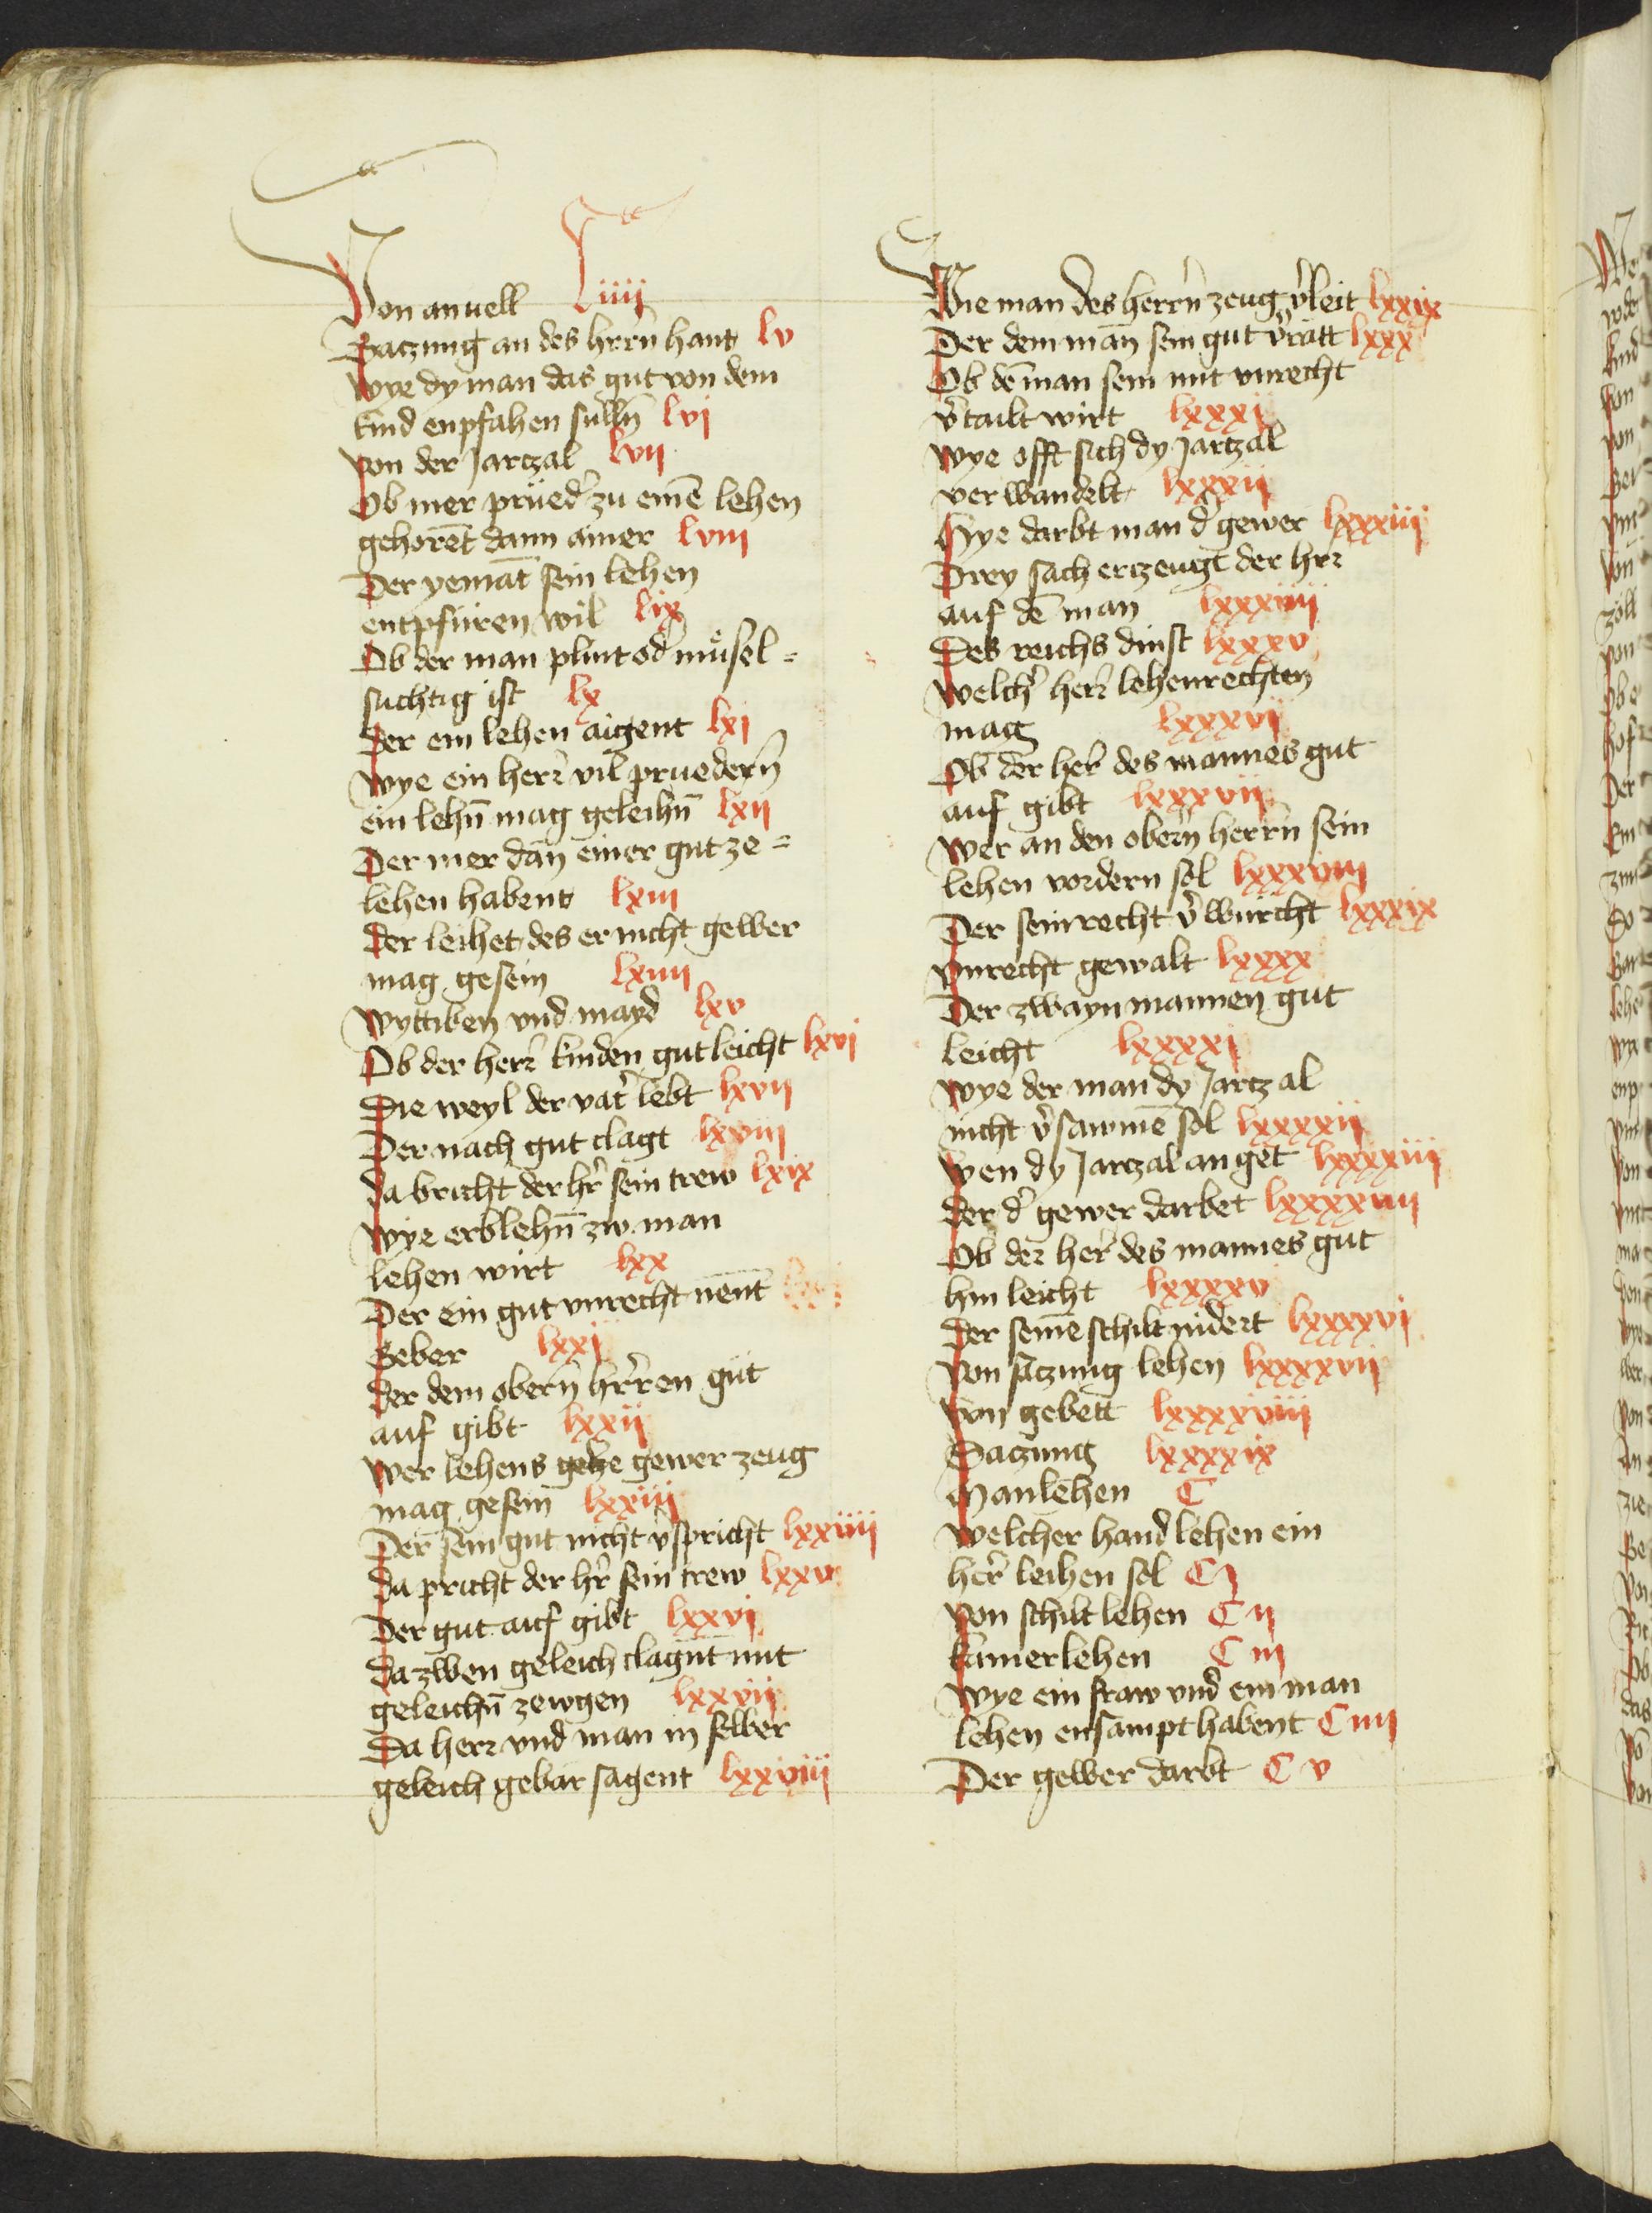 Von anuell Liiij
Satzung an des hrrn̄ hant lv
wye dy man das gut von dem
kind enpfahen sulln̄ lvi
von der Jartzal lvii
Ob mer prüed' zu einē lehen
gehorēt dann ainer lviii
Der yemāt sein lehen
entpfüren wil lix
Ob der man plint od' müsel=
suchtig ist lx
Der ein lehen aigent lxi
wye ein herr vil pruedern̄
ein lehn̄ mag geleihn̄ lxii
Der mer dan̄ einer gut ze=
lehen habent lxiii
der leihet des er nicht gewer
mag gesein lxiiii
wyttiben vnd mayd lxv
Ob der herr kinden gut leicht lxvi
Die weyl der vat' lebt lxvii
Der nach gut clagt lxviii
da bricht der hr' sein trew lxix
wye erblehn̄ zw man
lehen wirt lxx
Der ein gut vnrecht nēnt
Geber lxxi
der dem obern̄ hrren gut
auf gibt lxxii
wer lehens gewer zeug
mag gesein lxxiii
Der sein gut nicht v'spricht lxxiiii
da pricht der hr' sein trew lxxv
Der gut auf gibt lxxvi
da zwen geleich clagn̄t mit
geleichn̄ zewgen lxxvii
Da herr vnd man in selber
geleich gebar sagent lxxviii
Wie man des herrn̄ zeug v'leit lxxix
Der dem man̄ sein gut v'ratt lxxx
Ob dē man sein mit vnrecht
v'tailt wirt lxxxi
wye offt sich dy Jartzal
verwandelt lxxxii
Hye darbt man d' gewer lxxxiii
Drey sach ertzeugt der hrr
auf dē man lxxxiiii
Des reichs dinst lxxxv
welch' herr lehenrechten
mag lxxxvi
Ob der her' des mannes gut
auf gibt lxxxvii
wer an den obern̄ herrn̄ sein
lehen vordern sol lxxxviii
Der sein recht v'wurcht lxxxix
vnrecht gewalt lxxxx
Der zwayn mannen gut
leicht lxxxxi
wye der man dy Jartzal
nicht v'sawmē sol lxxxxii
wen dy Jartzal an get lxxxxiii
der d' gewer darbet lxxxxiiii
Ob der her' des mannes gut
hin leicht lxxxxv
der seinē schilt nidert lxxxxvi
von satzung lehen lxxxxvii
von gebett lxxxxviii
Satzung lxxxxix
Manlehen C
welcher hand lehen ein
her' leihen sol Cj
von schilt lehen Cij
kamerlehen Ciij
wye ein fraw vnd ein man
lehen ensampt habent Ciiij
Der gewer darbt Cv